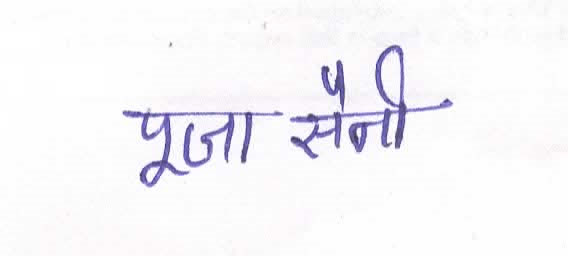 पूजा सैनी